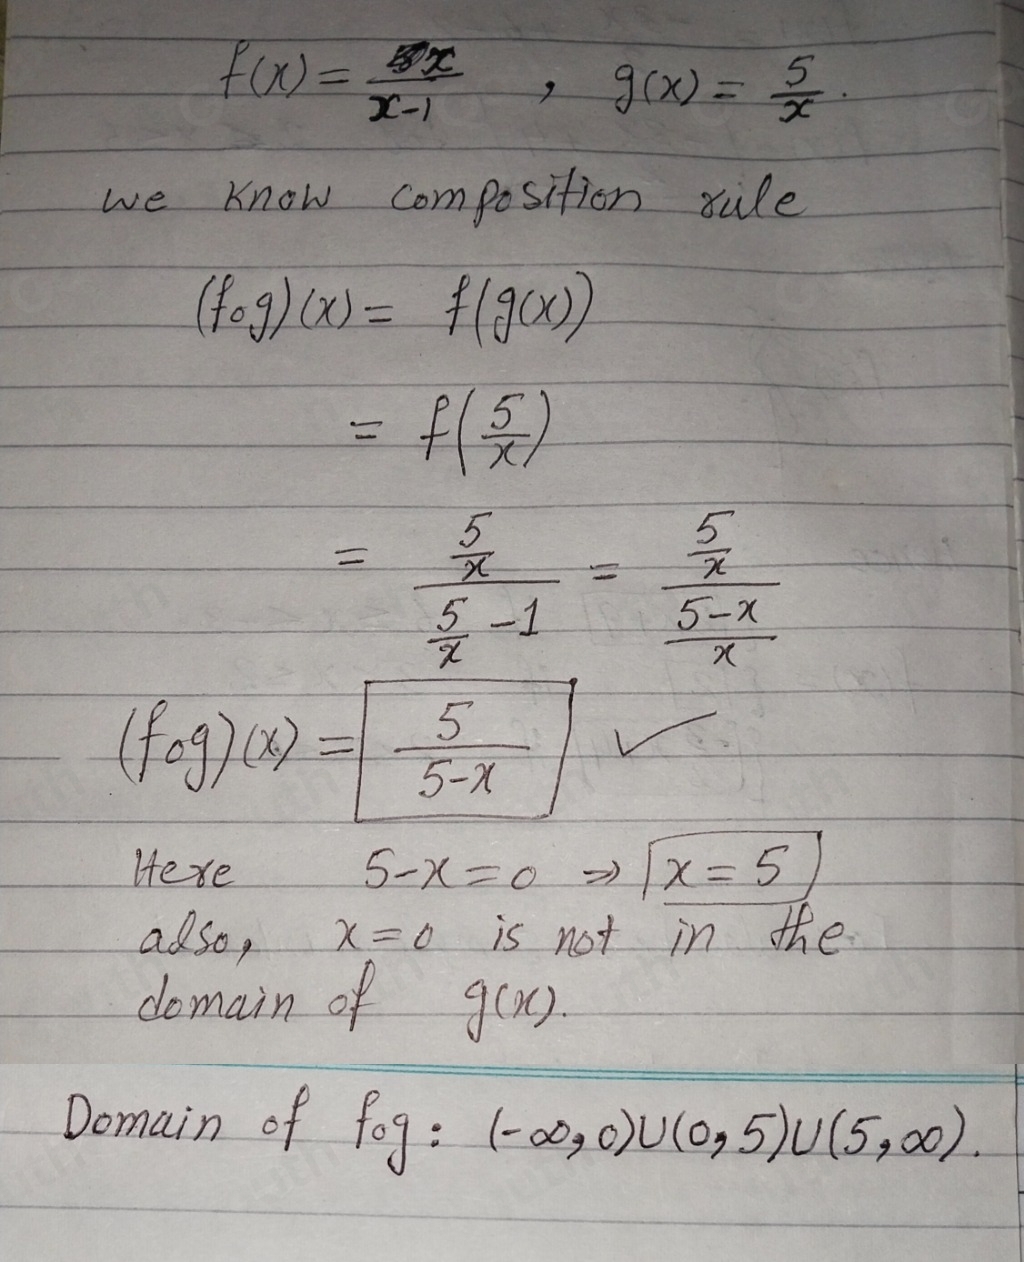 f(x) = x/(x-1) , g(x) = 5/x.
we know composition rule
(fog)(x) = f(g(x))
= f(5/x)
= (5/x)/(5/x - 1) = (5/x)/((5-x)/x)
(fog)(x) = 5/(5-x) ✓
Here 5-x=0 ⇒ x=5
also, x=0 is not in the
domain of g(x).
Domain of fog: (-∞,0)U(0,5)U(5,∞).